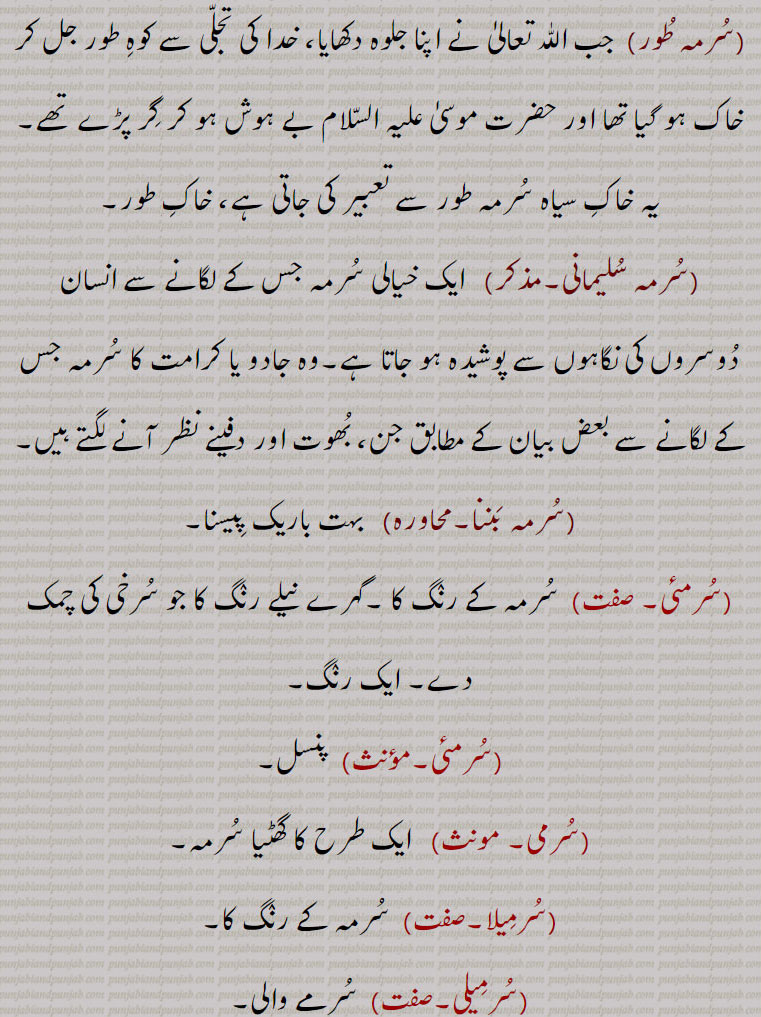 (سُرمہ طُور) جب اللہ تعالیٰ نے اپنا جلوہ دکھایا، خدا کی تجلّی سے کوہِ طور جل کر
خاک ہو گیا تھا اور حضرت موسیٰ علیہ السّلام بے ہوش ہو کر گِر پڑے تھے۔
یہ خاکِ سیاہ سُرمہ طور سے تعبیر کی جاتی ہے، خاکِ طور۔
(سُرمہ سُلیمانی۔مذکر) ایک خیالی سُرمہ جس کے لگانے سے انسان
دُوسروں کی نگاہوں سے پوشیدہ ہو جاتا ہے۔وہ جادو یا کرامت کا سُرمہ جس
کے لگانے سے بعض بیان کے مطابق جن، بُھوت اور دفینے نظر آنے لگتے ہیں۔
(سُرمہ بَننا۔محاورہ) بہت باریک پِیسنا۔
(سُرمئی۔ صفت) سُرمہ کے رنگ کا ۔گہرے نیلے رنگ کا جو سُرخی کی چمک
دے۔ ایک رنگ۔
(سُرمئی۔مؤنث) پنسل۔
(سُرمی۔ مونث) ایک طرح کا گھٹیا سُرمہ۔
(سُرمِیلا۔صفت) سُرمہ کے رنگ کا۔
(سُرمِیلی۔صفت) سُرمے والی۔